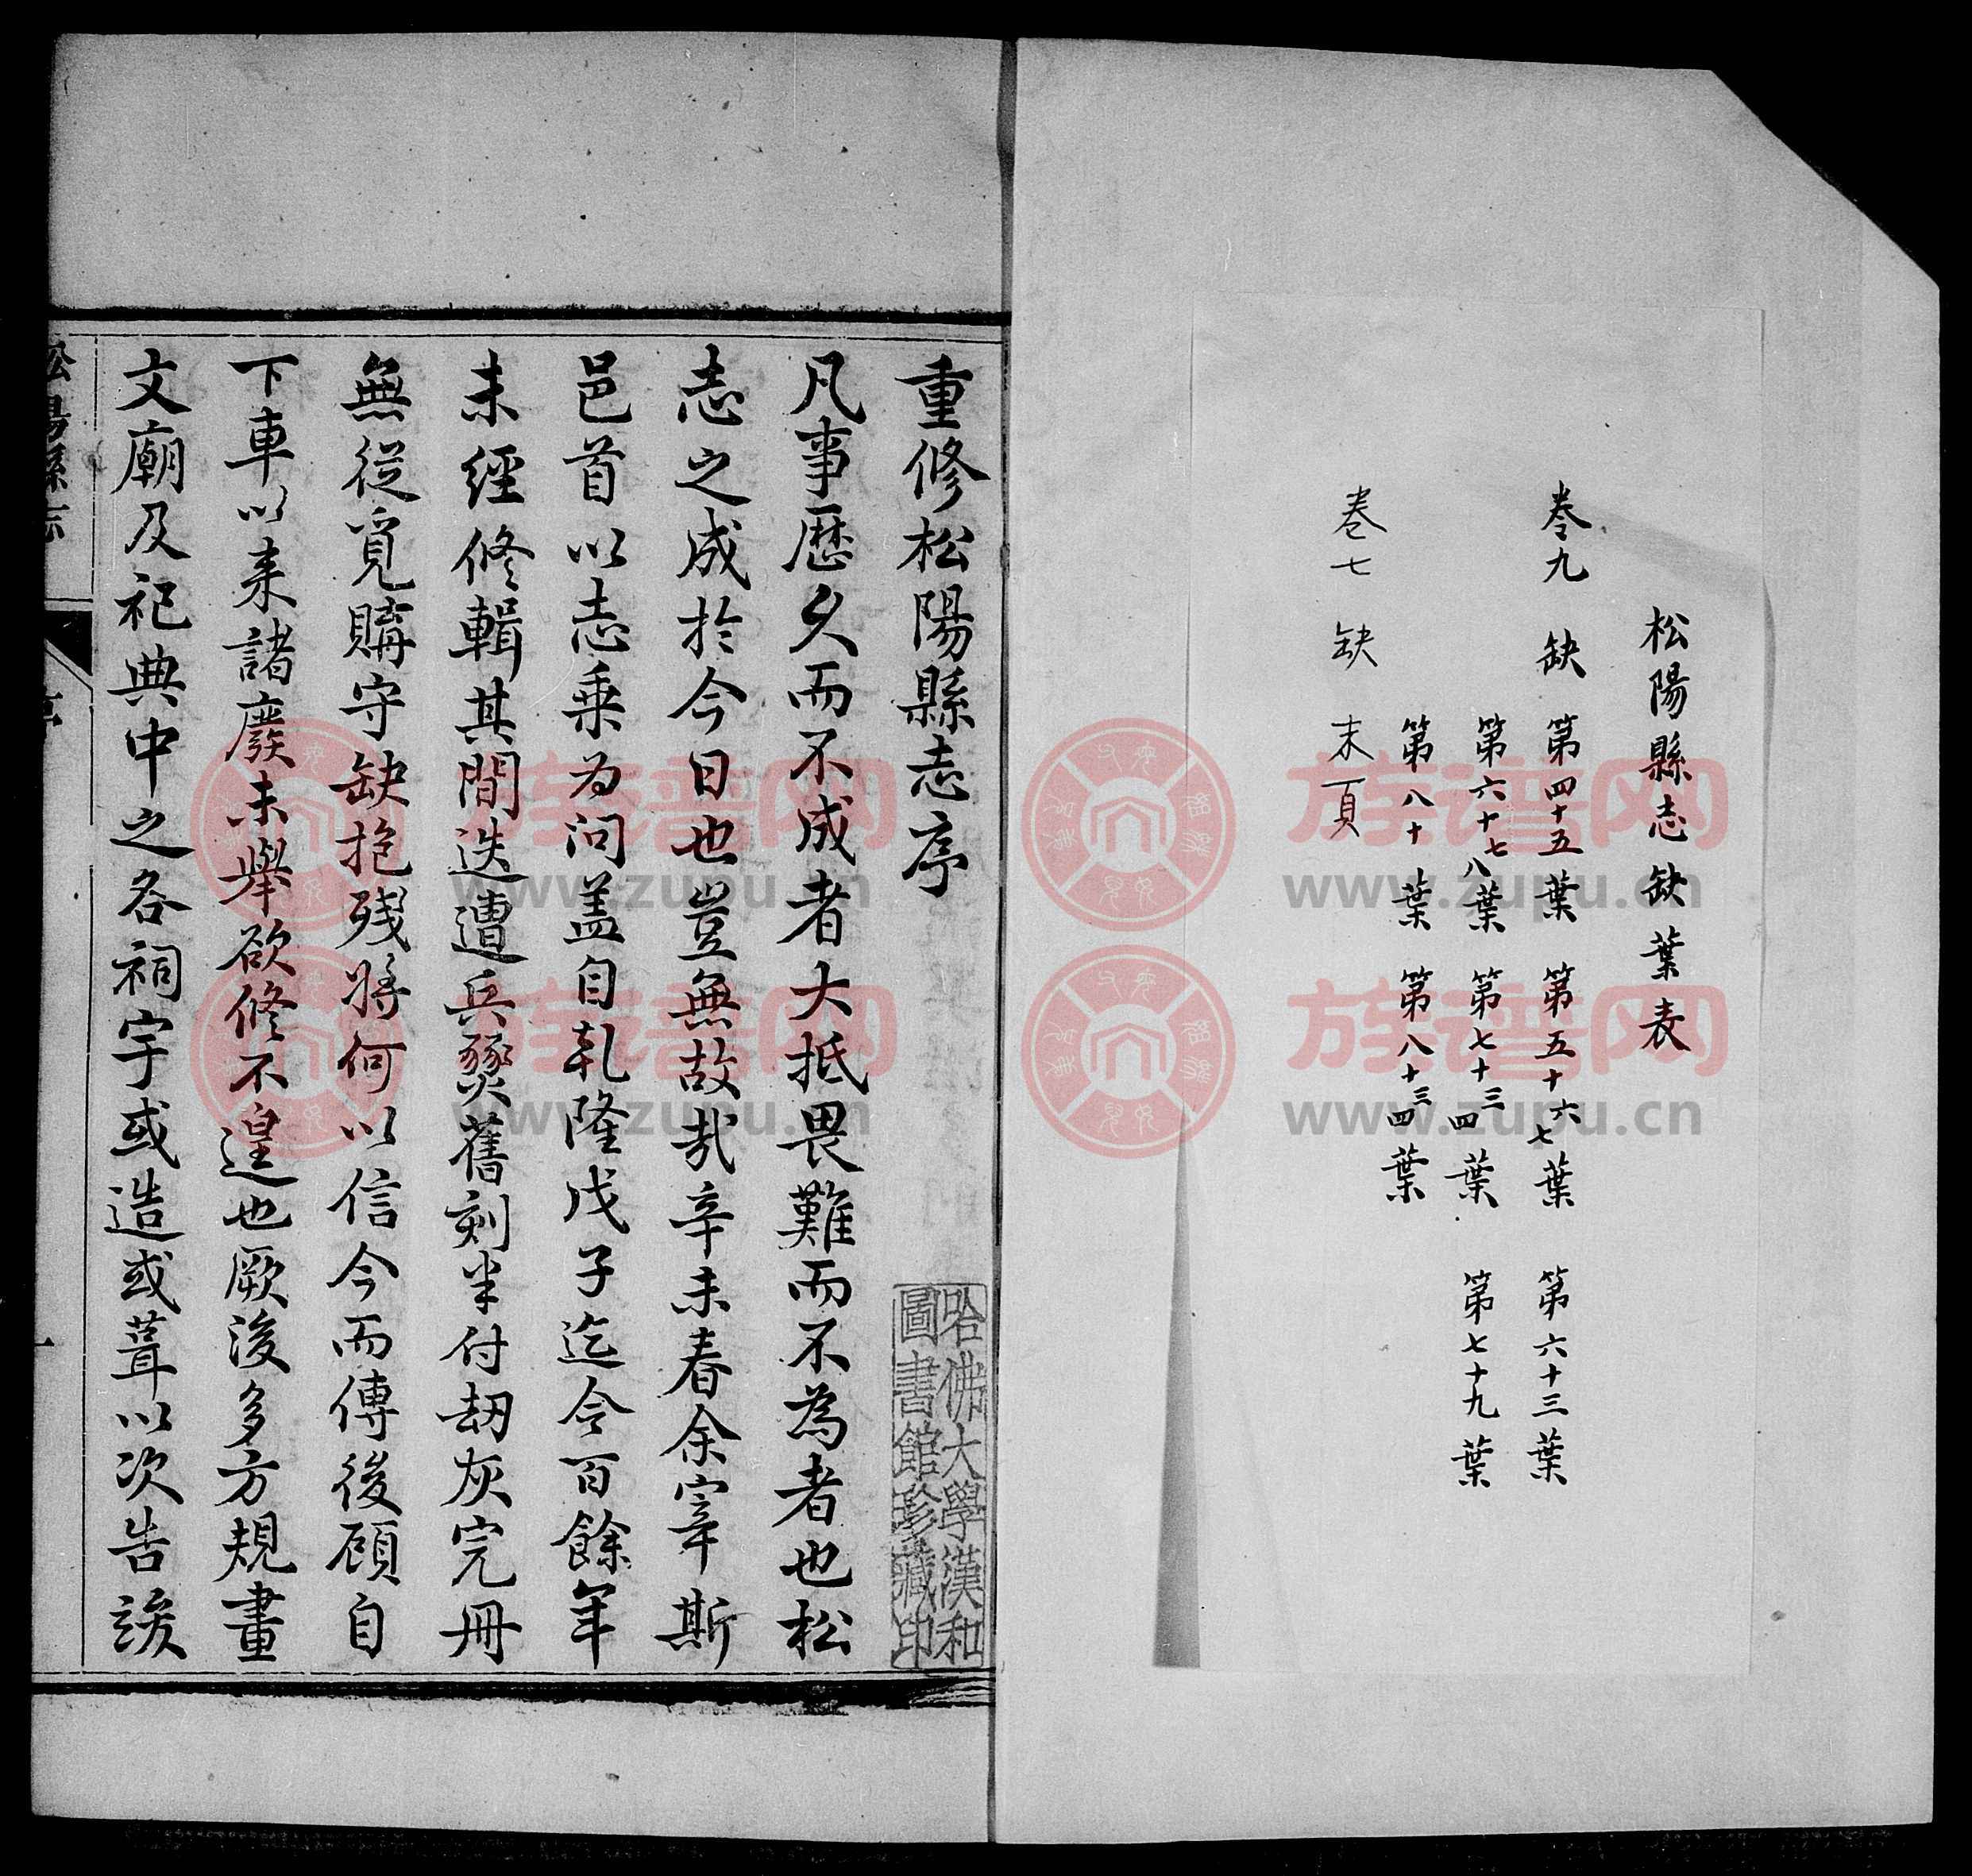 松陽縣志缺葉表
卷九 缺 第四十五葉 第五十六七葉 第六十三葉
第六十七八葉 第七十三四葉 第七十九葉
第八十葉 第八十三四葉
卷七 缺 末頁
重修松陽縣志序
凡事歷久而不成者大抵畏難而不為者也松
志之成於今日也豈無故哉辛未春余宰斯
邑首以志乗为问盖自乹隆戊子迄今百餘年
未經修輯其間迭遭兵燹舊刻半付刧灰完冊
無從覓購守缺抱殘將何以信今而傳後顧自
下車以来諸廢未舉欲修不遑也厥後多方規畫
文廟及祀典中之各祠宇或造或葺以次告竣
哈佛大學漢和
圖書館珍藏印
松陽縣志
序
一
族谱网
www.zupu.cn
族谱网
www.zupu.cn
族谱网
www.zupu.cn
族谱网
www.zupu.cn